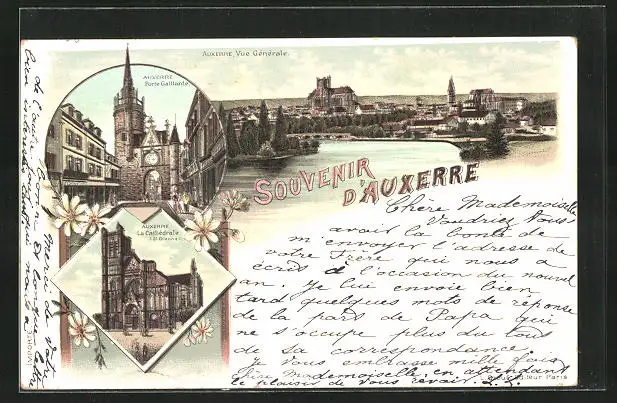 AUXERRE, Vue Générale.
AUXERRE
Porte Gaillarde.
SOUVENIR
D'AUXERRE
AUXERRE
La Cathédrale
Chère Mademoiselle
Voudriez Vous
avoir la bonté de
m'envoyer l'adresse de
votre Frère qui nous a
écris à l'occasion du nouvel
an. Je lui envoie bien
tard quelques mots de réponse
de la part de Papa qui
ne s'occupe plus du tout
de sa correspondance.
Je Vous embrasse mille fois
chère Mademoiselle, en attendant
le plaisir de Vous revoir.
Editeur Paris
Merci de votre
bonne et longue lettre